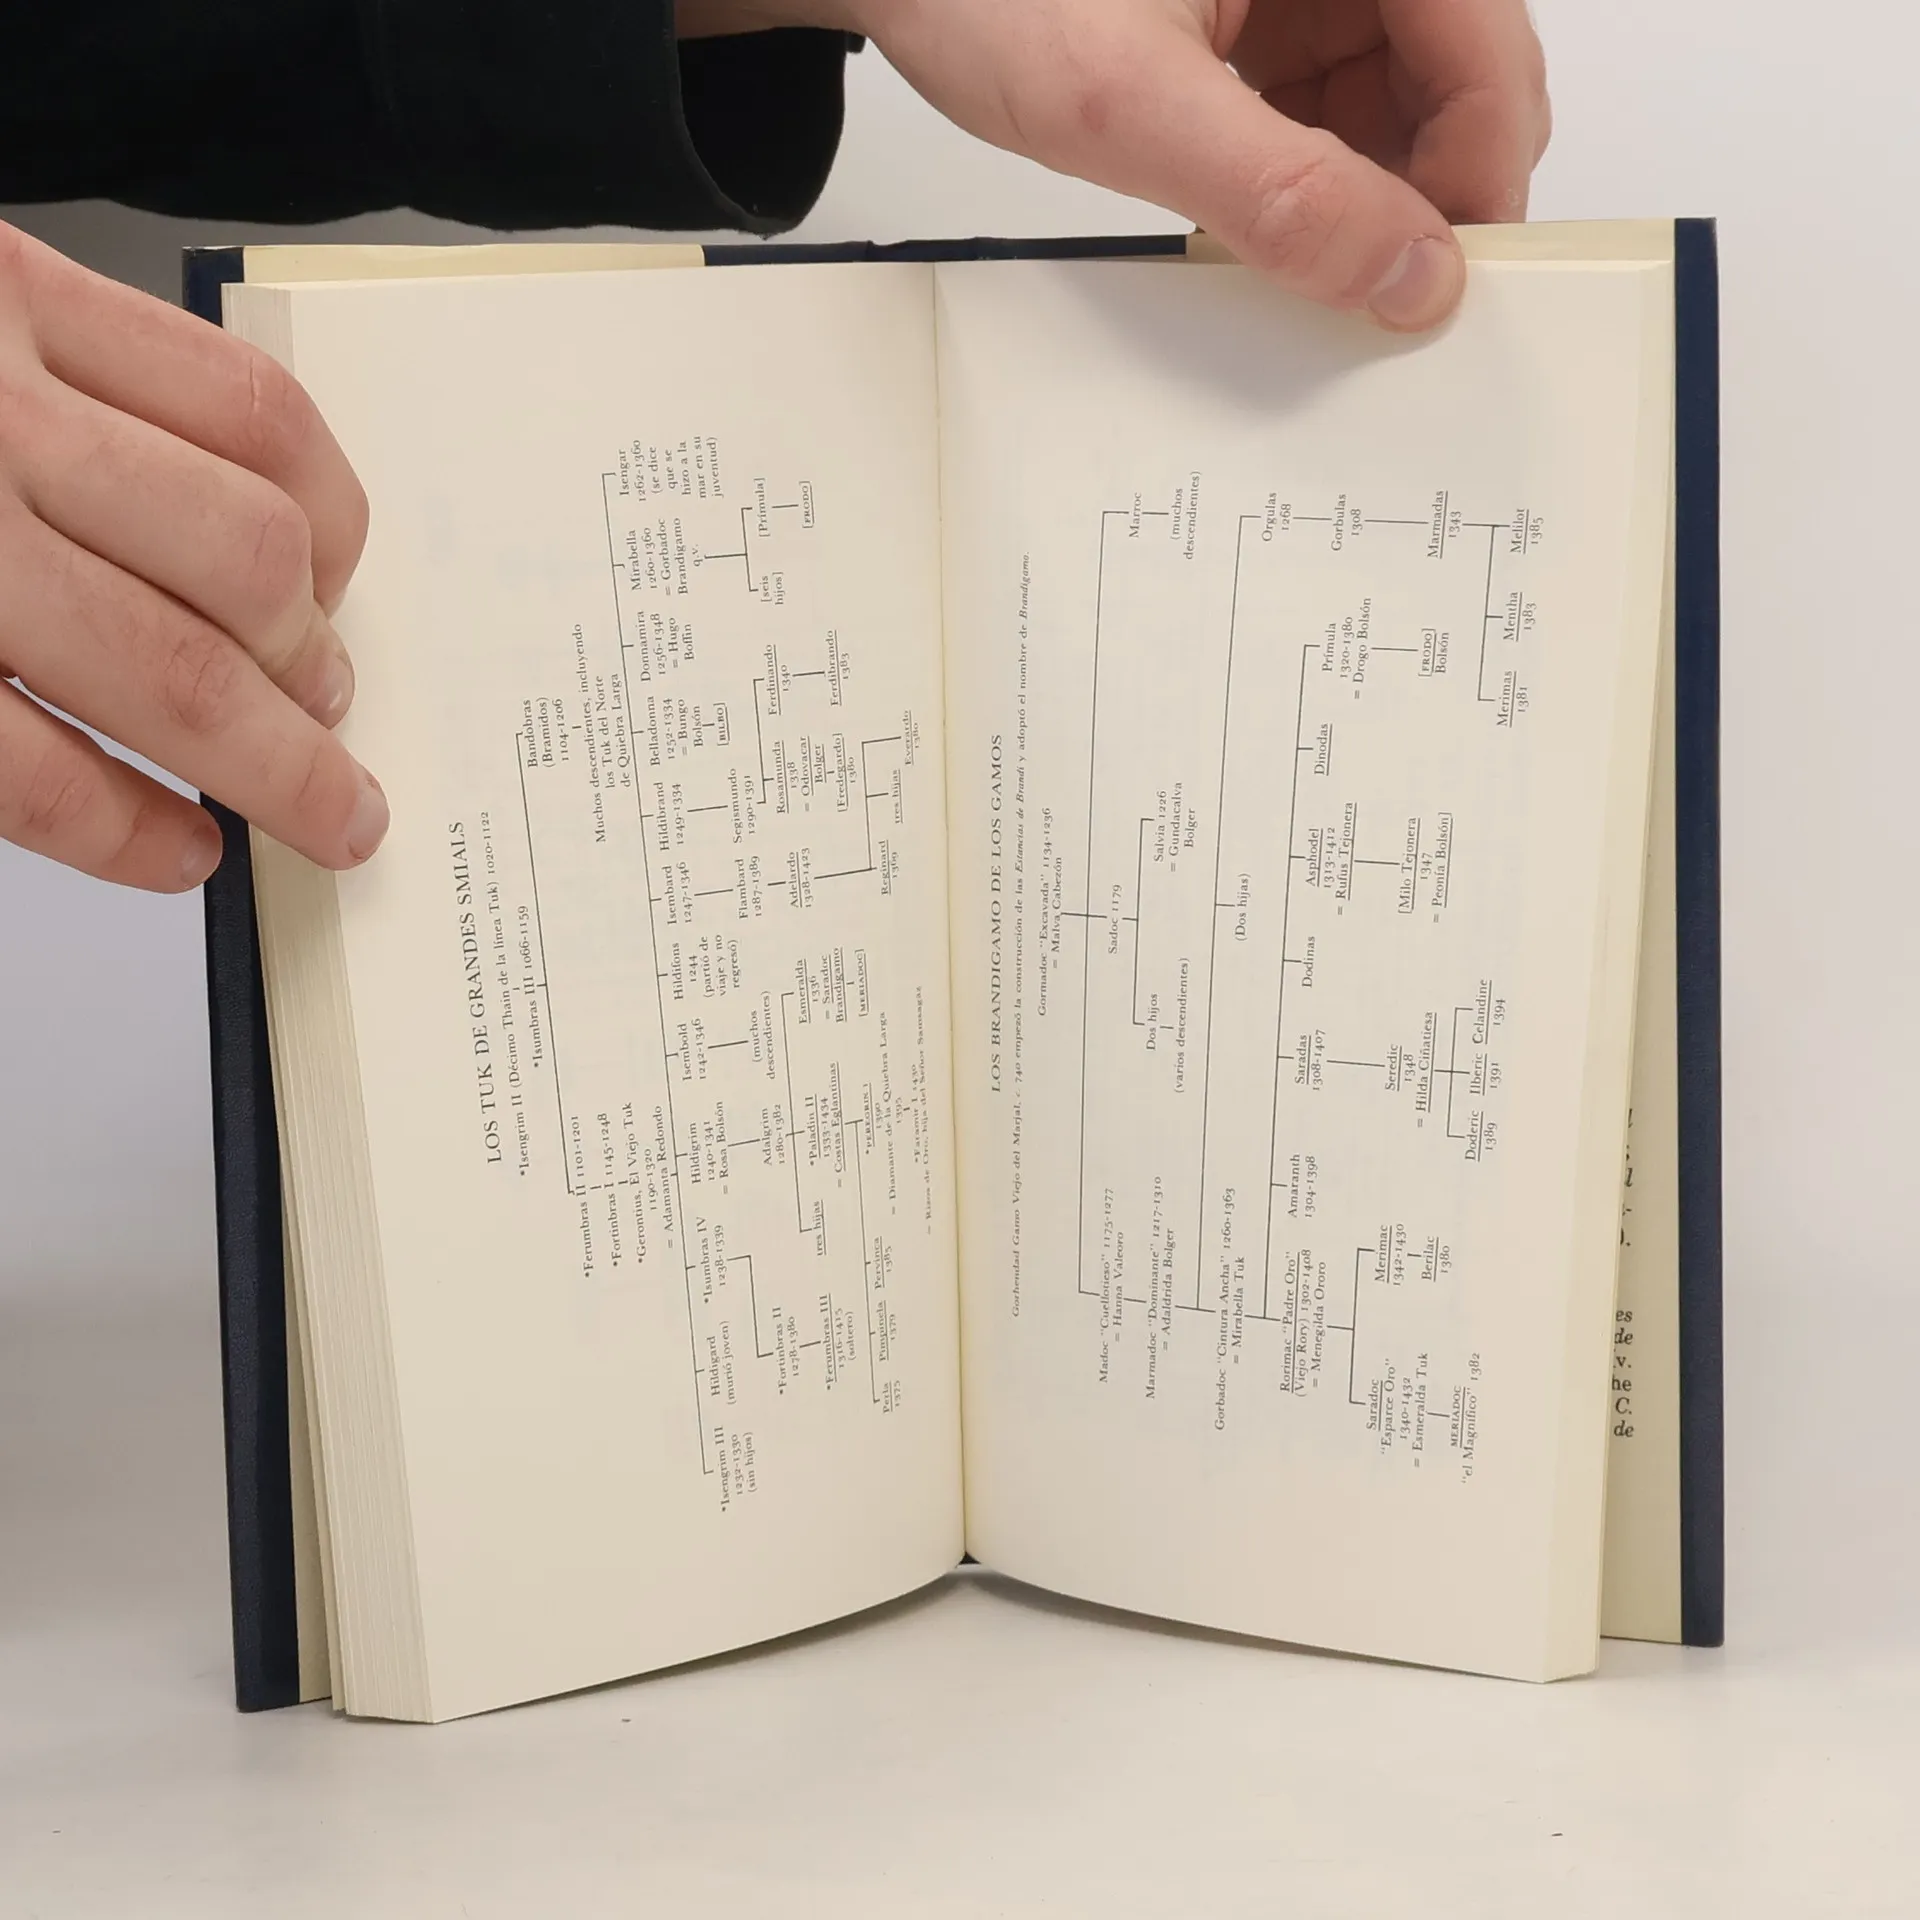 LOS TUK DE GRANDES SMIALS
*Isengrim II (Décimo Thain de la línea Tuk) 1020-1122
*Isumbras III 1066-1159
*Ferumbras II 1101-1201
Bandobras
(Bramidos)
1104-1206
*Fortinbras I 1145-1248
Muchos descendientes, incluyendo
los Tuk del Norte
de Quiebra Larga
*Gerontius, El Viejo Tuk
1190-1320
= Adamanta Redondo
*Isengrim III
1232-1330
(sin hijos)
Hildigard
(murió joven)
*Isumbras IV
1238-1339
Hildigrim
1240-1341
= Rosa Bolsón
Isembold
1242-1346
Hildifons
1244
(partió de
viaje y no
regresó)
Isembard
1247-1346
Hildibrand
1249-1334
Belladonna
1252-1334
= Bungo
Bolsón
[BILBO]
Donnamira
1256-1348
= Hugo
Boffin
Mirabella
1260-1360
= Gorbadoc
Brandigamo
q.v.
Isengar
1262-1360
(se dice
que se
hizo a la
mar en su
juventud)
*Fortinbras II
1278-1380
Adalgrim
1280-1382
(muchos
descendientes)
Flambard
1287-1389
Segismundo
1290-1391
[seis
hijos]
[Prímula]
[FRODO]
*Ferumbras III
1316-1415
(soltero)
tres hijas
*Paladin II
1333-1434
= Costas Eglantinas
Esmeralda
1336
= Saradoc
Brandigamo
[MERIADOC]
Adelardo
1328-1423
Rosamunda
1338
= Odovacar
Bolger
[Fredegardo]
1380
Ferdinando
1340
Ferdibrando
1383
Perla
1375
Pimpinela
1379
Pervinca
1385
*PEREGRIN I
1390
= Diamante de la Quiebra Larga
1395
Reginard
1369
tres hijas
Everardo
1380
*Faramir I 1430
= Rizos de Oro, hija del Señor Samsagaz
LOS BRANDIGAMO DE LOS GAMOS
Gorhendad Gamo Viejo del Marjal, c. 740 empezó la construcción de las Estancias de Brandi y adoptó el nombre de Brandigamo.
Gormadoc "Excavada" 1134-1236
= Malva Cabezón
Madoc "Cuellotieso" 1175-1277
= Hanna Valeoro
Sadoc 1179
Marroc
(muchos
descendientes)
Marmadoc "Dominante" 1217-1310
= Adaldrida Bolger
Dos hijos
(varios descendientes)
Salvia 1226
= Gundacalva
Bolger
Gorbadoc "Cintura Ancha" 1260-1363
= Mirabella Tuk
(Dos hijas)
Orgulas
1268
Gorbulas
1308
Rorimac "Padre Oro"
(Viejo Rory) 1302-1408
= Menegilda Ororo
Amaranth
1304-1398
Saradas
1308-1407
Dodinas
Asphodel
1313-1412
= Rufus Tejonera
Dinodas
Prímula
1320-1380
= Drogo Bolsón
Saradoc
"Esparce Oro"
1340-1432
= Esmeralda Tuk
Merimac
1342-1430
Seredic
1348
= Hilda Ciñatiesa
[Milo Tejonera
1347
= Peonía Bolsón]
[FRODO]
Bolsón
Marmadas
1343
MERIADOC
"el Magnífico" 1382
Berilac
1380
Doderic
1389
Ilberic
1391
Celandine
1394
Merimas
1381
Mentha
1383
Melilot
1385
es
de
v.
he
C.
de